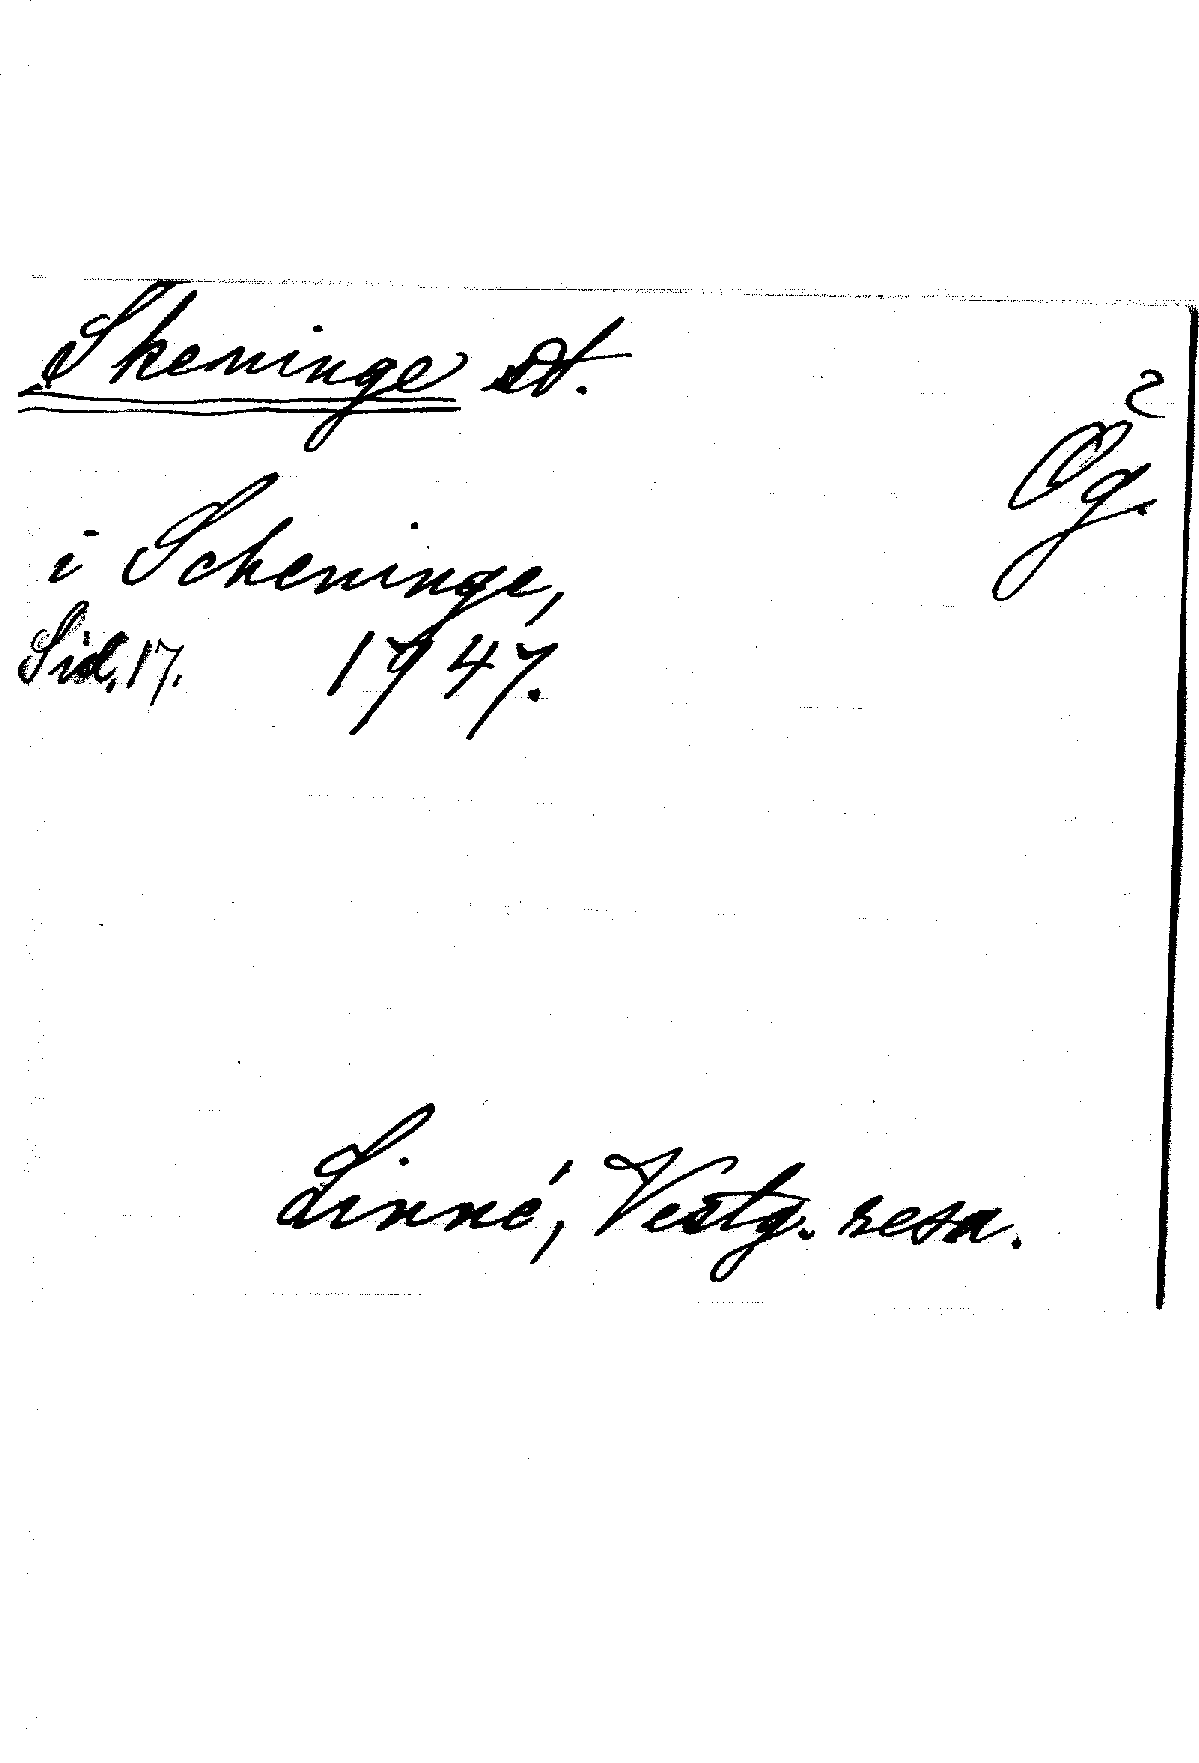 Skeninge st.
Ög.
i Scheninge,
Sid. 17. 1747.
Linné, Vestg. resa.